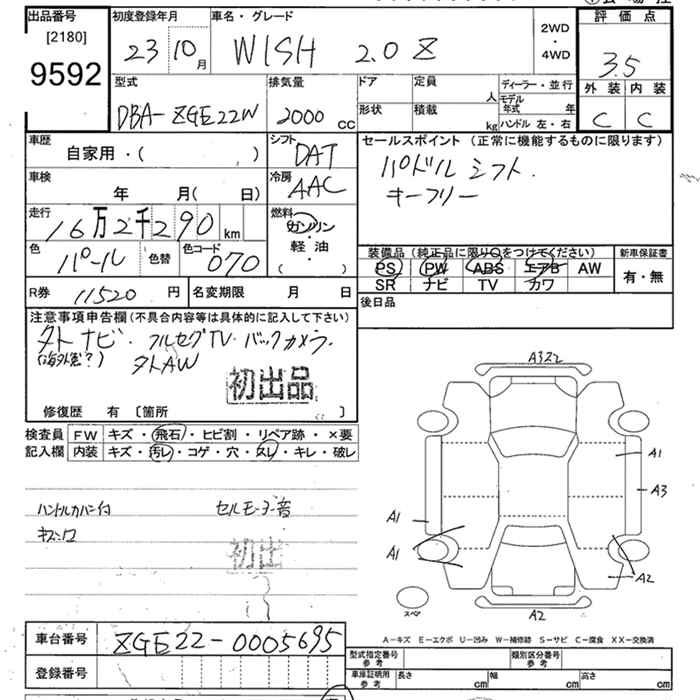 出品番号 初度登録年月 車名・グレード 評価点
[2180] 23 10月 WISH 2.0 Z 2WD・4WD 3.5
9592
外装 内装
C C
型式 排気量 ドア 定員 人 ディーラー・並行
DBA-ZGE22W 2000 cc 形状 積載 kg モデル年式 年
ハンドル 左・右
車歴 シフト セールスポイント (正常に機能するものに限ります)
自家用・( ) DAT パドルシフト.
車検 冷房 キーフリー
年 月( 日) AAC
走行 燃料
16万2千290km ガソリン
軽・油
( )
色 色替 色コード 装備品(純正品に限り○をつけてください) 新車保証書
パール 070 PS PW ABS エアB AW 有・無
SR ナビ TV カワ
R券 11520円 名変期限 月 日 後日品
注意事項申告欄(不具合内容等は具体的に記入して下さい)
外ナビ・フルセグTV・バックカメラ.
外AW
初出品
修復歴 有 [箇所 ]
検査員 FW キズ・飛石・ヒビ割・リペア跡・×要
記入欄 内装 キズ・汚レ・コゲ・穴・スレ・キレ・破レ
ハンドルカバー付 セルモーター音
初出
A3
A1
A3
A1
A1
A2
スペア
A2
A−キズ E−エクボ U−凹み W−補修跡 S−サビ C−腐食 XX−交換済
車台番号 ZGE22-0005695
型式指定番号 参考 類別区分番号 参考
登録番号 車庫証明用 参考 長さ cm 幅 cm 高さ cm